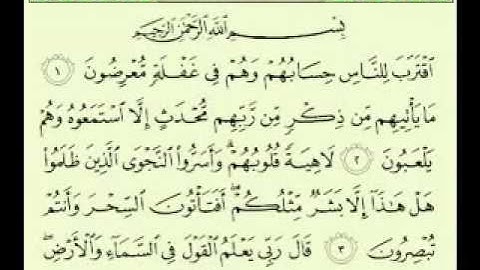 بِسْمِ اللَّهِ الرَّحْمَٰنِ الرَّحِيمِ
اقْتَرَبَ لِلنَّاسِ حِسَابُهُمْ وَهُمْ فِي غَفْلَةٍ مُّعْرِضُونَ ١
مَا يَأْتِيهِم مِّن ذِكْرٍ مِّن رَّبِّهِم مُّحْدَثٍ إِلَّا اسْتَمَعُوهُ وَهُمْ
يَلْعَبُونَ ٢ لَاهِيَةً قُلُوبُهُمْ ۗ وَأَسَرُّوا النَّجْوَى الَّذِينَ ظَلَمُوا
هَلْ هَٰذَا إِلَّا بَشَرٌ مِّثْلُكُمْ ۖ أَفَتَأْتُونَ السِّحْرَ وَأَنتُمْ
تُبْصِرُونَ ٣ قَالَ رَبِّي يَعْلَمُ الْقَوْلَ فِي السَّمَاءِ وَالْأَرْضِ ۖ